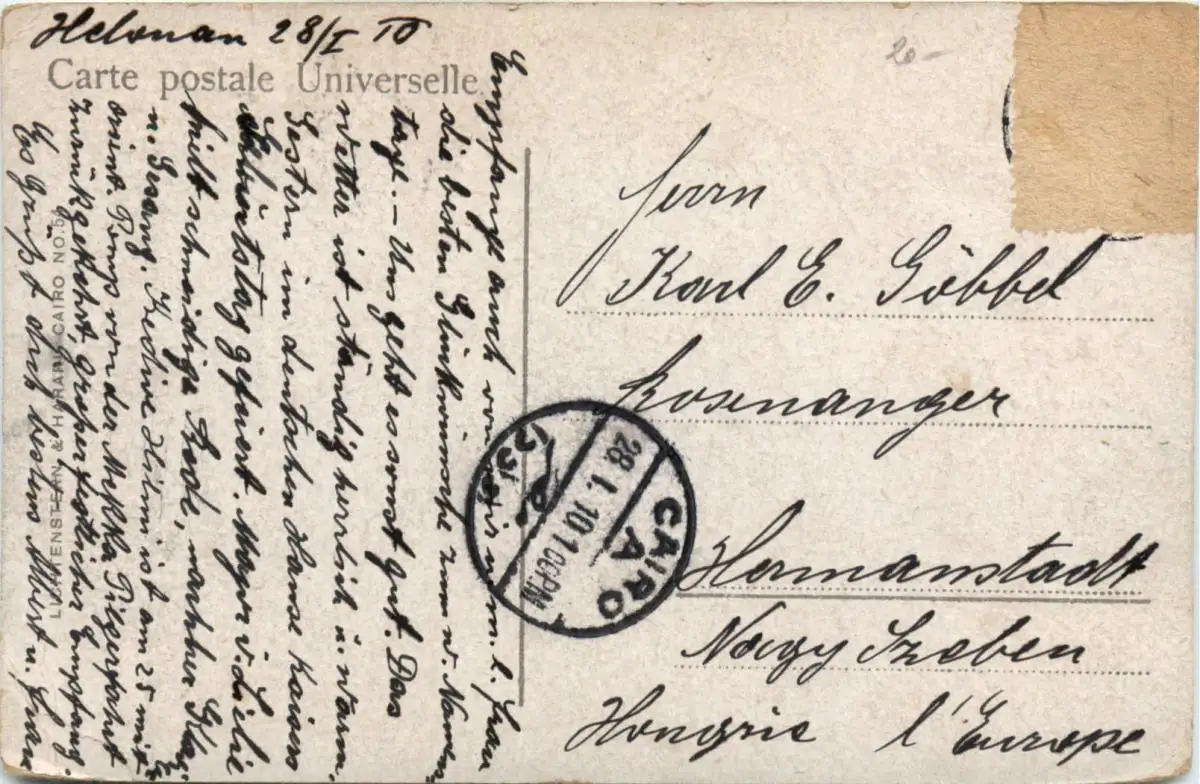 Helouan 28/I 10
Carte postale Universelle
20-
Empfange auch von mir u. m. l. Frau
die besten Glückwünsche zum w. Namens
tage. – Uns geht es sonst gut. Das
Wetter ist ständig herrlich u. warm.
Gestern im deutschen Hause Kaisers
Geburtstag gefeiert. Mayer v. Lielie
hielt schneidige Rede, nachher
u. Gesang. Kedive Hilmi ist am 25 mit
orient. Pomp von der Mekka Pilgerfahrt
zurückgekehrt, großer festlicher Empfang.
Es Grüßt dich bestens Albert u. Frau
LICHTENSTERN & HARARI CAIRO NO. 5
Herrn
Karl E. Göbbel
Rosenanger
Hermannstadt
Nagy Szeben
Hongrie l'Europe
CAIRO
A
28. 1. 10 1 00 PM